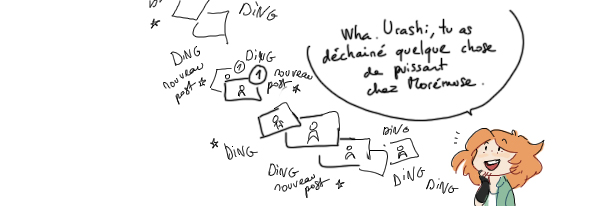 DING
DING
*
DING
nouveau
post *
DING
1
1
nouveau
post *
Wha. Urashi, tu as
déchainé quelque chose
de puissant
chez Morémuse.
* DING
DING
nouveau
post *
DING
DING
DING